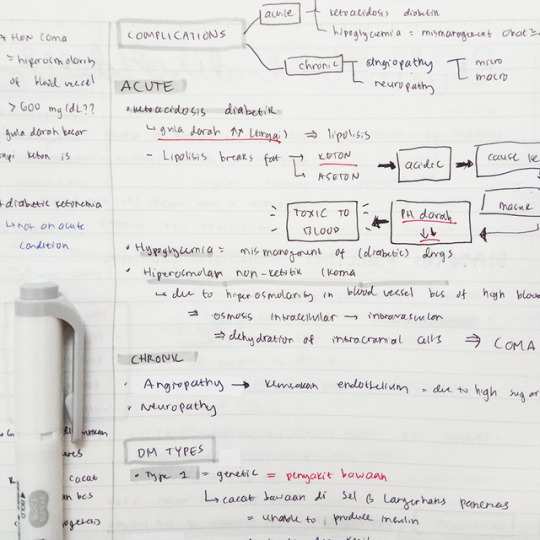 HON COMA
= hiperosmolarity
of blood vessel
> 600 mg/dL??
gula darah besar
tapi keton is
diabetic ketonemia
↳ not an acute
condition
COMPLICATIONS
acute
ketoacidosis diabetik
hipoglycemia = mismanagement obat
chronic
angiopathy
micro
macro
neuropathy
ACUTE
• ketoacidosis diabetik
↳ gula darah ↑↑ ⇒ lipolisis
- Lipolisis breaks fat → KETON
↳ ASETON
→ acidic → cause
masuk
PH darah
↓↓
TOXIC TO
BLOOD
• Hypoglycemia = mismanagement of (diabetic) drugs
• Hiperosmolar non-ketotik (koma
↳ due to hiperosmolarity in blood vessel bcs of high blood
⇒ osmosis intracellular → intravascular
⇒ dehydration of intracranial cells ⇒ COMA
CHRONIC
• Angiopathy → kerusakan endothelium = due to high sugar
• Neuropathy
DM TYPES
• Type 1 = genetic = penyakit bawaan
↳ cacat bawaan di sel B Langerhans pancreas
= unable to produce insulin
cacat
bcs
BOLD